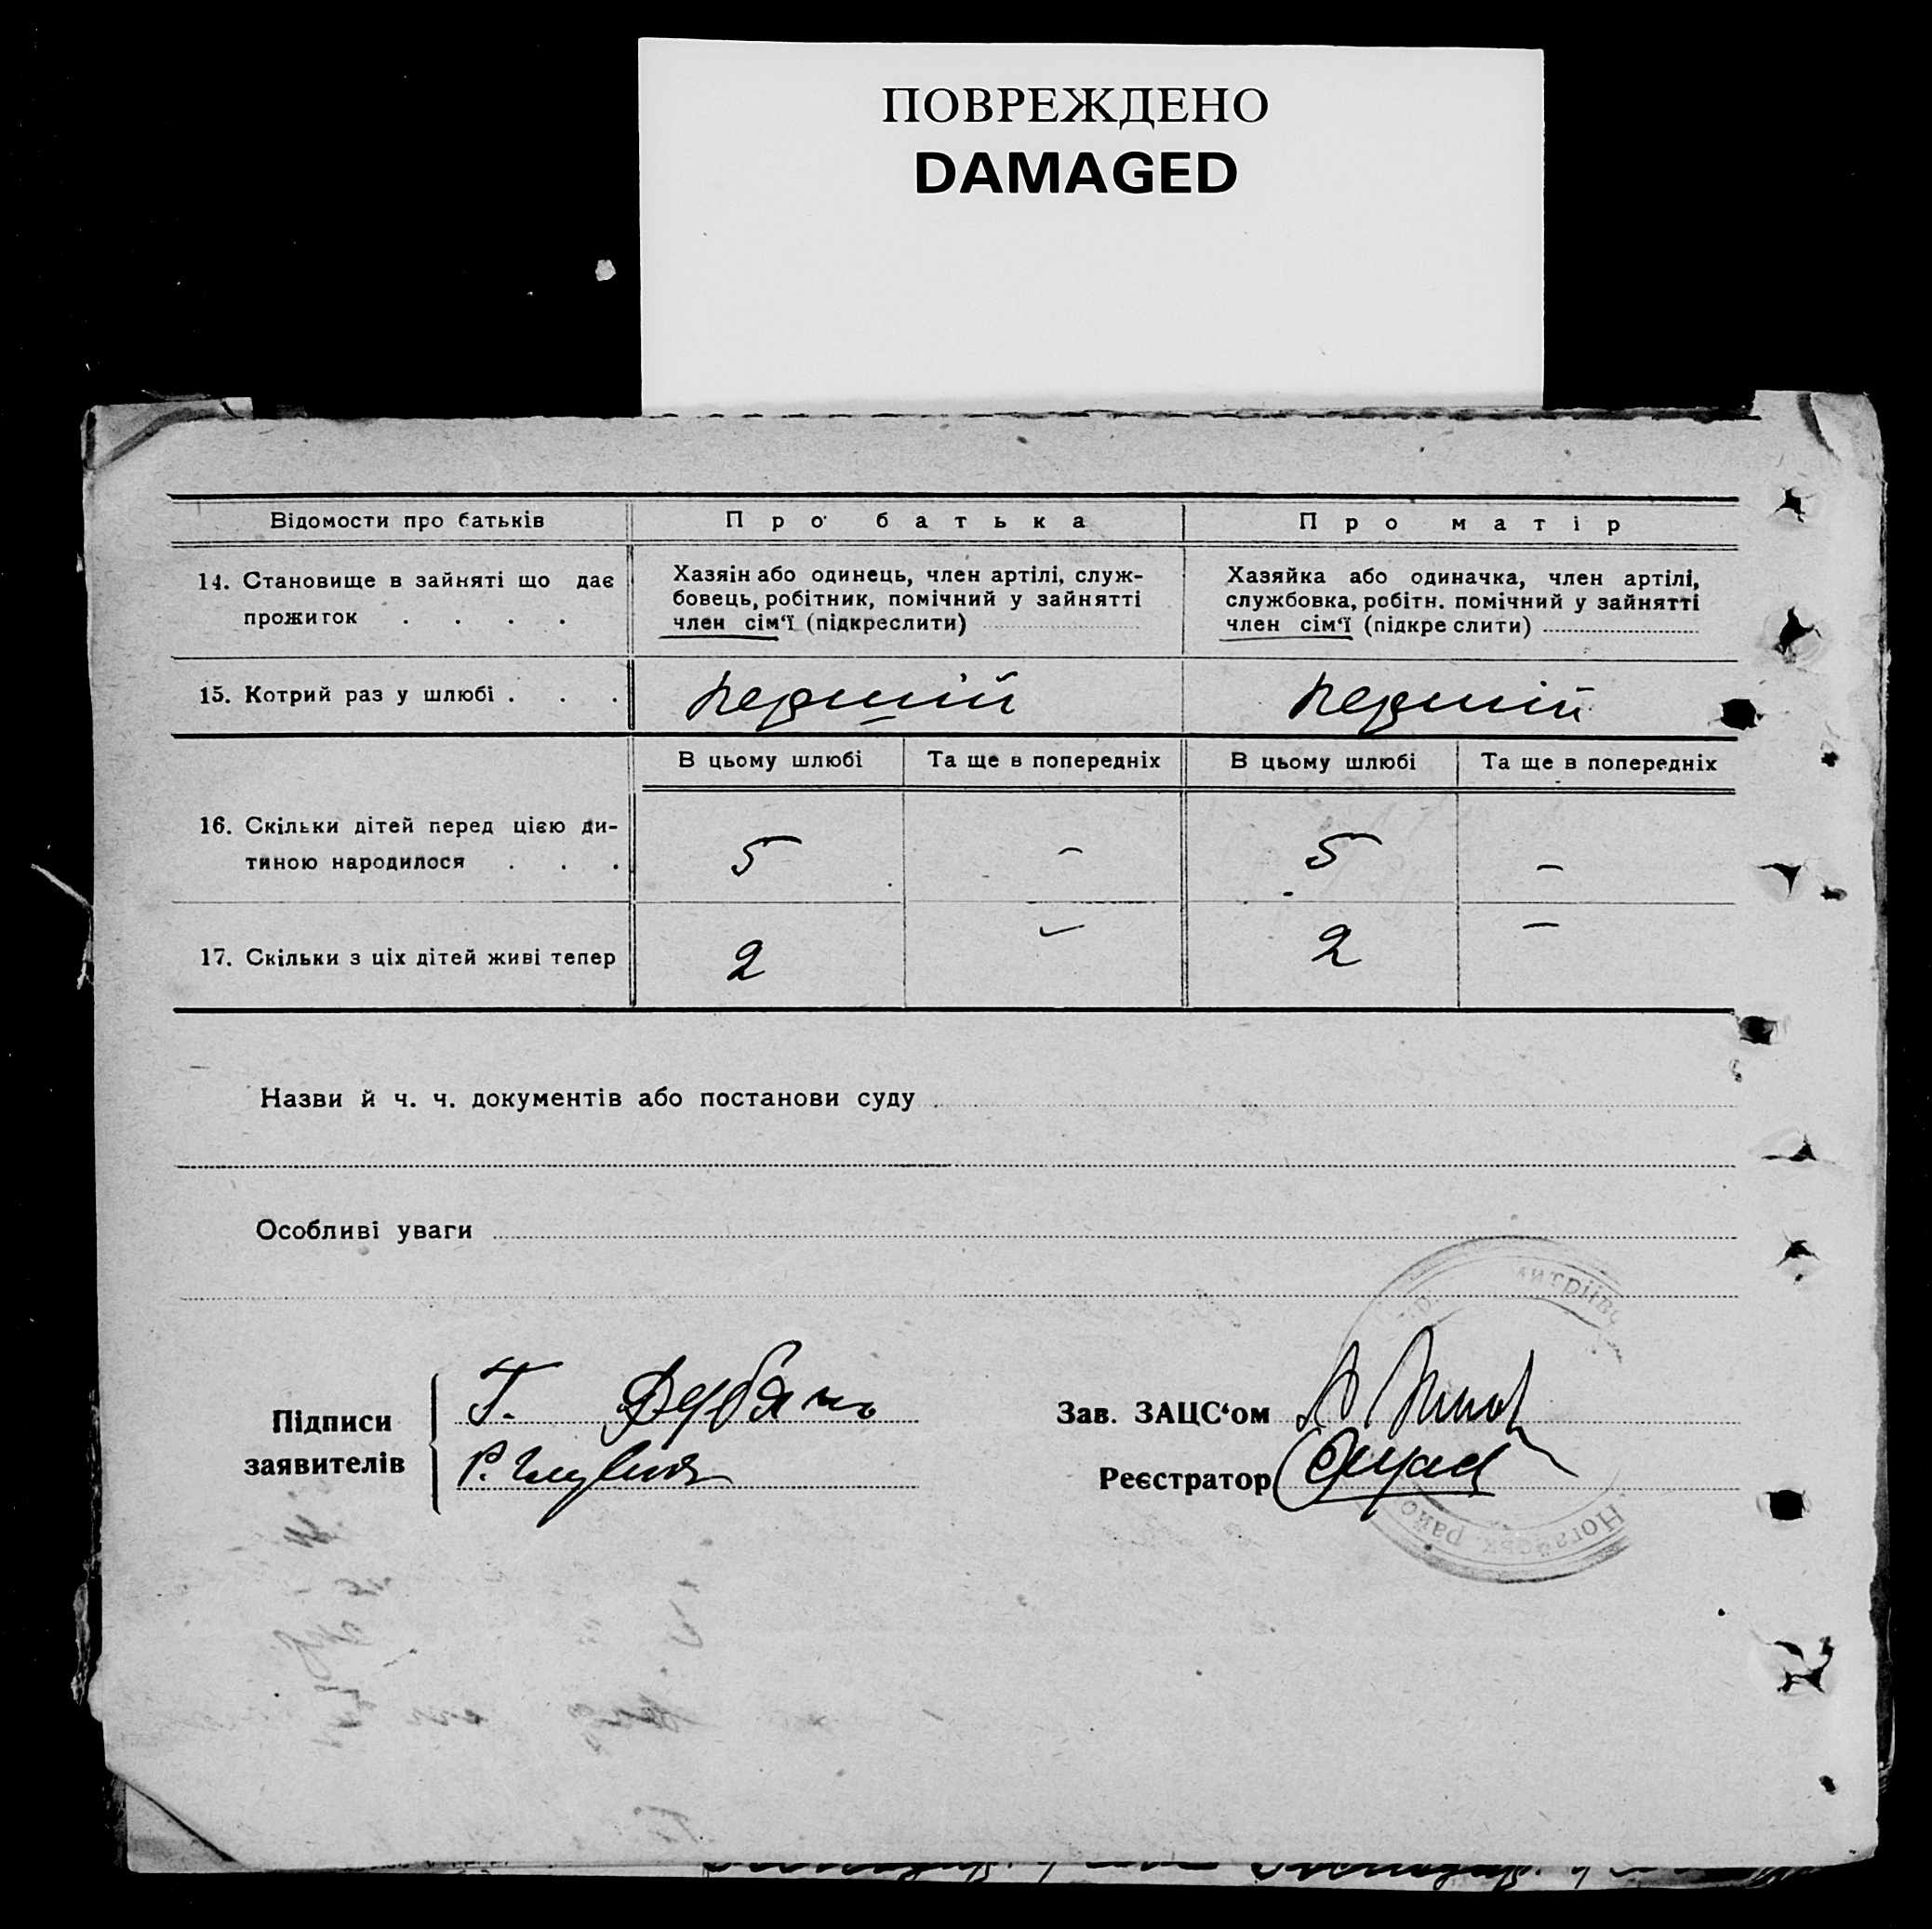 ПОВРЕЖДЕНО
DAMAGED
Відомости про батьків
Про батька
Про матір
14. Становище в зайняті що дає
прожиток . . . .
Хазяін або одинець, член артілі, служ-
бовець, робітник, помічний у зайнятті
член сім‘ї (підкреслити)
Хазяйка або одиначка, член артілі,
службовка, робітн. помічний у зайнятті
член сім‘ї (підкреслити)
15. Котрий раз у шлюбі . . .
першій
першій
В цьому шлюбі
Та ще в попередніх
В цьому шлюбі
Та ще в попередніх
16. Скільки дітей перед цією ди-
тиною народилося . . .
5 – 5 –
17. Скільки з ціх дітей живі тепер
2 – 2 –
Назви й ч. ч. документів або постанови суду
Особливі уваги
Підписи
заявителів
Г.
Р.
Зав. ЗАЦС‘ом
Реєстратор
Ногайськ. райо